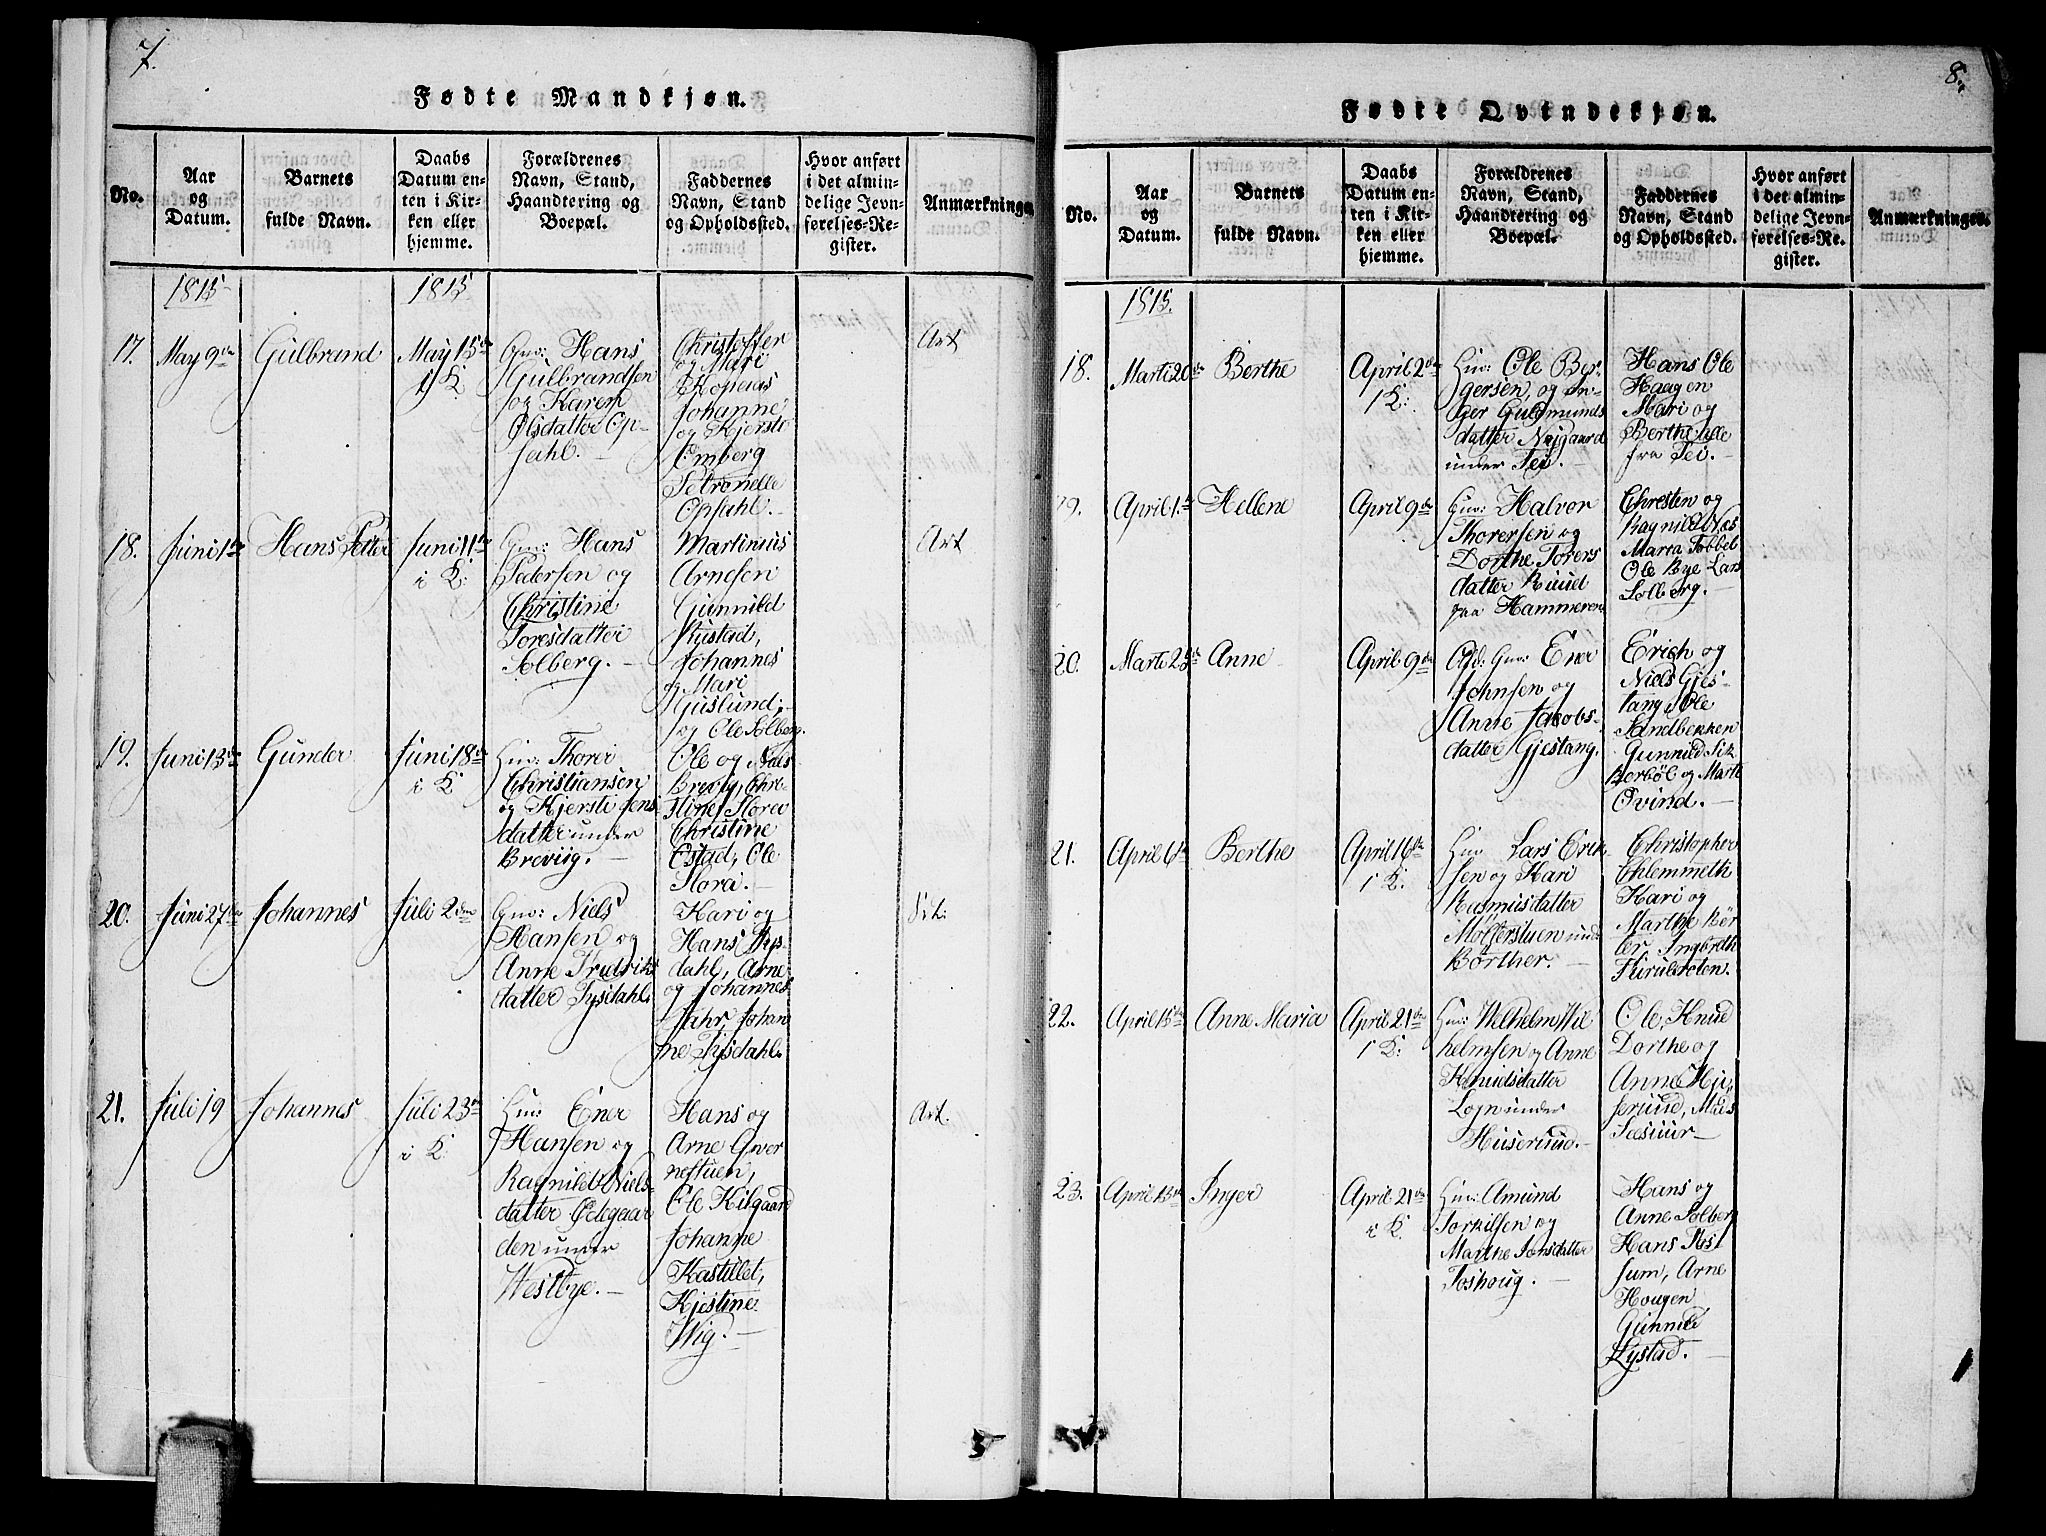 7.
Fødte Mandkjøn.
No.
Aar
og
Datum.
Barnets
fulde Navn.
Daabs
Datum en-
ten i Kir-
ken eller
hjemme.
Forældrenes
Navn, Stand,
Haandtering og
Boepæl.
Faddernes
Navn, Stand
og Opholdssted.
Hvor anført
i det almin-
delige Jevn-
førelses-Re-
gister.
Anmærkninger
1815
1815
17.
May 9de
Gulbrand
May 15de
i K
Gm: Hans
Gulbrandsen
og Karen
Olsdatter Op-
sahl.
Christoffer
og Mari
Kopaas
Johanne
og Kjersti
Omberg
Petronelle
Opsahl.
Art
18.
Juni 1te
Hans Petter
Juni 11te
i K:
Gm: Hans
Pedersen og
Christine
Toresdatter
Solberg.
Martinius
Arnesen
Gunnild
Rustad,
Johannes
og Mari
Guslund,
og Ole Solberg.
Art
19.
Juni 13de
Gunder
Juni 18de
i K
Hm: Thorer
Christiansen
og Kjersti Jens
datter under
Breviig.
Ole og Niels
Brevig, Chri-
stine Flora
Christine
Ostad, Ole
Flora.
20.
Juni 27de
Johannes
Juli 2den
Gm: Niels
Hansen og
Anne Fredriks
datter Tysdahl.
Kari og
Hans Tys-
dahl, Arne
og Johannes
Jahr, Johan
ne Tysdahl.
Sit:
21.
Juli 19
Johannes
Juli 23de
i K
Hm: Ener
Hansen og
Ragnild Niels-
datter Ødegaar
den under
Westbye.
Hans og
Arne Qver
nestuen,
Ole Kilgaard
Johanne
Kastellet,
Kjestine
Wig.
Art.
8.
Fødte Qvindekjøn.
No.
Aar
og
Datum.
Barnets
fulde Navn.
Daabs
Datum en-
ten i Kir-
ken eller
hjemme.
Forældrenes
Navn, Stand,
Haandtering og
Boepæl.
Faddernes
Navn, Stand
og Opholdssted.
Hvor anført
i det almin-
delige Jevn-
førelses-Re-
gister.
Anmærkninger.
1815.
18.
Marti 20de
Berthe
April 2den
i K:
Hm: Ole Ber-
gersen, og In-
ger Gudmunds
datter Nygaard
under Tei.
Hans Ole
Haagen
Mari og
Berthe alle
fra Tei.
19.
April 1te
Hellene
April 9de
Gm: Halvor
Thorersen og
Dorthe Torers
datter Ruud
paa Hammeren
Chresten og
Ragnild Næs
Maria Tobbel
Ole Bye Lars
Solberg.
20.
Marti 28de
Anne
April 9de
Gm: Ener
Johnsen og
Anne Jacobs-
datter Gjestang.
Erich og
Niels Gjes-
tang, Ole
Sandbekken
Gunnild
og Marte
Øvind.
21.
April 6te
Berthe
April 16de
i K:
Hm Lars Erik
sen og Kari
Rasmusdatter
under
Børther.
Christopher
Kari og
Marthe Bør
ter
22.
April 15de
Anne Maria
April 21de
i K:
Hm: Wilhelm Wil
helmsen og Anne
Knudsdatter
under
Huserud.
Ole, Knud
Dorthe og
Anne Hu-
serud,
23.
April 13de
Inger
April 21de
i K
Hm: Amund
Torkilsen og
Marthe Jonsdatter
Toshoug.
Hans og
Anne Solberg
Hans
Arne
Hougen
Gunnild
Lystad.